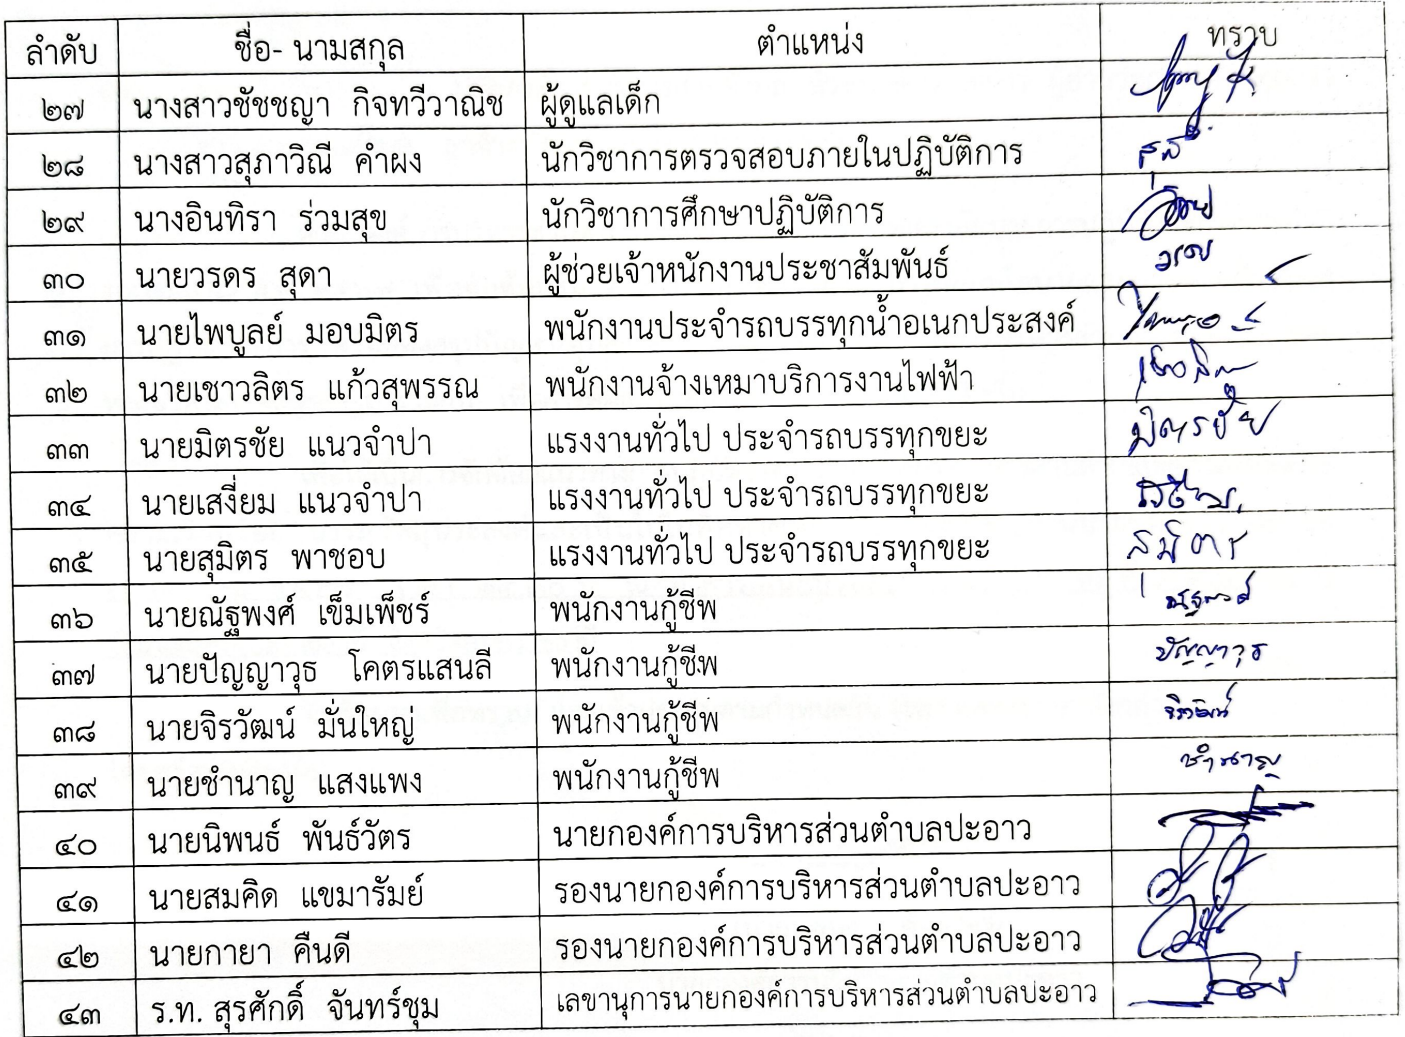 ลำดับ ชื่อ- นามสกุล ตำแหน่ง ทราบ
๒๗ นางสาวชัชชญา กิจทวีวาณิช ผู้ดูแลเด็ก
๒๘ นางสาวสุภาวิณี คำผง นักวิชาการตรวจสอบภายในปฏิบัติการ
๒๙ นางอินทิรา ร่วมสุข นักวิชาการศึกษาปฏิบัติการ
๓๐ นายวรดร สุดา ผู้ช่วยเจ้าหนักงานประชาสัมพันธ์
๓๑ นายไพบูลย์ มอบมิตร พนักงานประจำรถบรรทุกน้ำอเนกประสงค์
๓๒ นายเชาวลิตร แก้วสุพรรณ พนักงานจ้างเหมาบริการงานไฟฟ้า
๓๓ นายมิตรชัย แนวจำปา แรงงานทั่วไป ประจำรถบรรทุกขยะ มิตรชัย
๓๔ นายเสงี่ยม แนวจำปา แรงงานทั่วไป ประจำรถบรรทุกขยะ
๓๕ นายสุมิตร พาชอบ แรงงานทั่วไป ประจำรถบรรทุกขยะ
๓๖ นายณัฐพงศ์ เข็มเพ็ชร์ พนักงานกู้ชีพ
๓๗ นายปัญญาวุธ โคตรแสนลี พนักงานกู้ชีพ ปัญญาวุธ
๓๘ นายจิรวัฒน์ มั่นใหญ่ พนักงานกู้ชีพ จิรวัฒน์
๓๙ นายชำนาญ แสงแพง พนักงานกู้ชีพ ชำนาญ
๔๐ นายนิพนธ์ พันธ์วัตร นายกองค์การบริหารส่วนตำบลปะอาว
๔๑ นายสมคิด แขมารัมย์ รองนายกองค์การบริหารส่วนตำบลปะอาว
๔๒ นายกายา คืนดี รองนายกองค์การบริหารส่วนตำบลปะอาว
๔๓ ร.ท. สุรศักดิ์ จันทร์ชุม เลขานุการนายกองค์การบริหารส่วนตำบลปะอาว